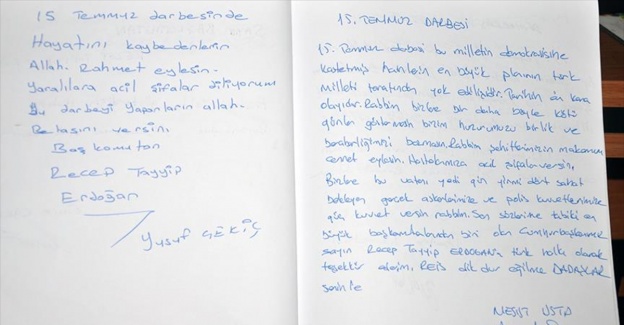 15 Temmuz darbesinde
Hayatını kaybedenlerin
Allah. Rahmet eylesin.
Yaralılara acil şifalar diliyorum
Bu darbeyi yapanların allah.
Belasını versin.
Baş komutan
Recep Tayyip
Erdoğan
Yusuf ÇEKİÇ
15. TEMMUZ DARBESİ
15. Temmuz darbesi bu milletin demokrasisine
hainlerin en büyük planının türk
milleti tarafından yok edilişidir. Tarihin en kara
olayıdır. Rabbim bizlere bir daha böyle kötü
günler göstermesin bizim huzurumuzu birlik ve
beraberliğimizi bozmasın. Rabbim şehitlerimizin makamını
cennet eylesin. acil şifalar versin.
Bizlere bu vatanı yedi gün yirmi dört saat
bekleyen gerek askerlerimize ve polis kuvvetlerimize
güç kuvvet versin rabbim. Son sözlerime tabiki en
büyük biri olan Cumhurbaşkanımız
sayın Recep Tayyip ERDOĞAN'a türk halkı olarak
teşekkür ederim. REİS dik dur eğilme DADAŞLAR
MESUT USTA